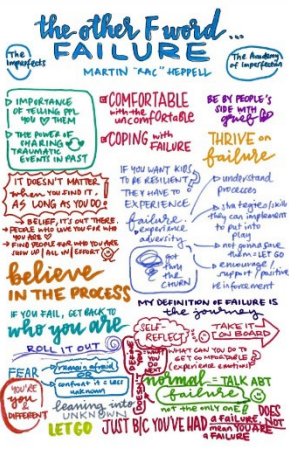 the other F word...
FAILURE
The Imperfects
The Academy of Imperfection
MARTIN "RAC" HEPPELL
IMPORTANCE
OF TELLING PPL
YOU THEM
THE POWER OF
SHARING
TRAUMATIC
EVENTS IN PAST
COMFORTABLE
with the
uncomfortable
COPING with
FAILURE
BE BY PEOPLE'S
SIDE WITH
grief
THRIVE on
failure
IT DOESN'T MATTER
when YOU FIND IT,
AS LONG AS YOU DO!
BELIEF, IT'S OUT THERE.
PEOPLE WHO LOVE YOU FOR WHO
YOU ARE
FIND PEOPLE FOR WHO YOU ARE
SHOW UP / ALL IN / EFFORT
IF YOU WANT KIDS
TO BE RESILIENT,
THEY HAVE TO
EXPERIENCE
failure.
experience
adversity.
understand
processes
strategies/skills
they can implement
to put into
play
not gonna save
them = LET GO
encourage /
support / positive
reinforcement
got
thru
the
CHURN
believe
IN THE PROCESS
IF YOU FAIL, GET BACK TO
who you are
ROLL IT OUT
MY DEFINITION OF FAILURE IS
the journey
SELF-
REFLECT
TAKE IT
ON BOARD
DEFINE
DOESN'T
WHAT CAN YOU DO TO
GET COMFORTABLE
(experience emotions)
FEAR
remain afraid
OR
confront it
unknown
YOU'RE
you &
DIFFERENT
leaning into
UNKNOWN
normal = TALK ABT
failure
not the only one!
LET GO
JUST B/C YOU'VE HAD a FAILURE
DOES
NOT
mean YOU ARE
a FAILURE